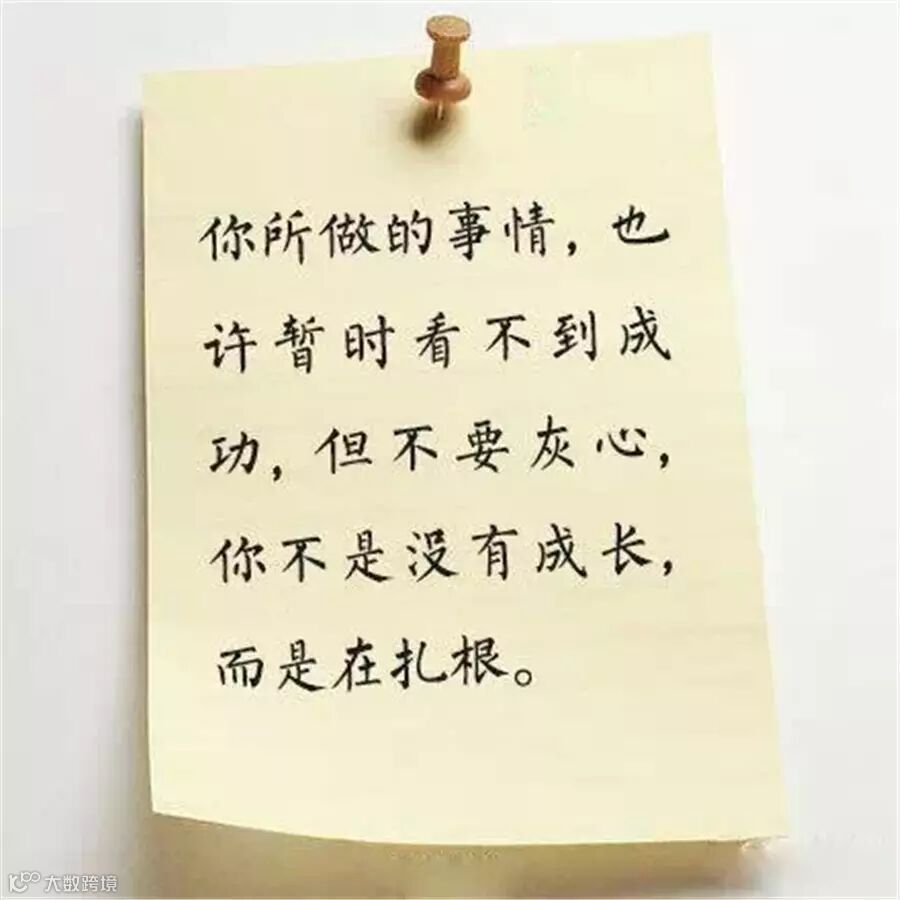 你所做的事情，也
许暂时看不到成
功，但不要灰心，
你不是没有成长，
而是在扎根。
大数跨境